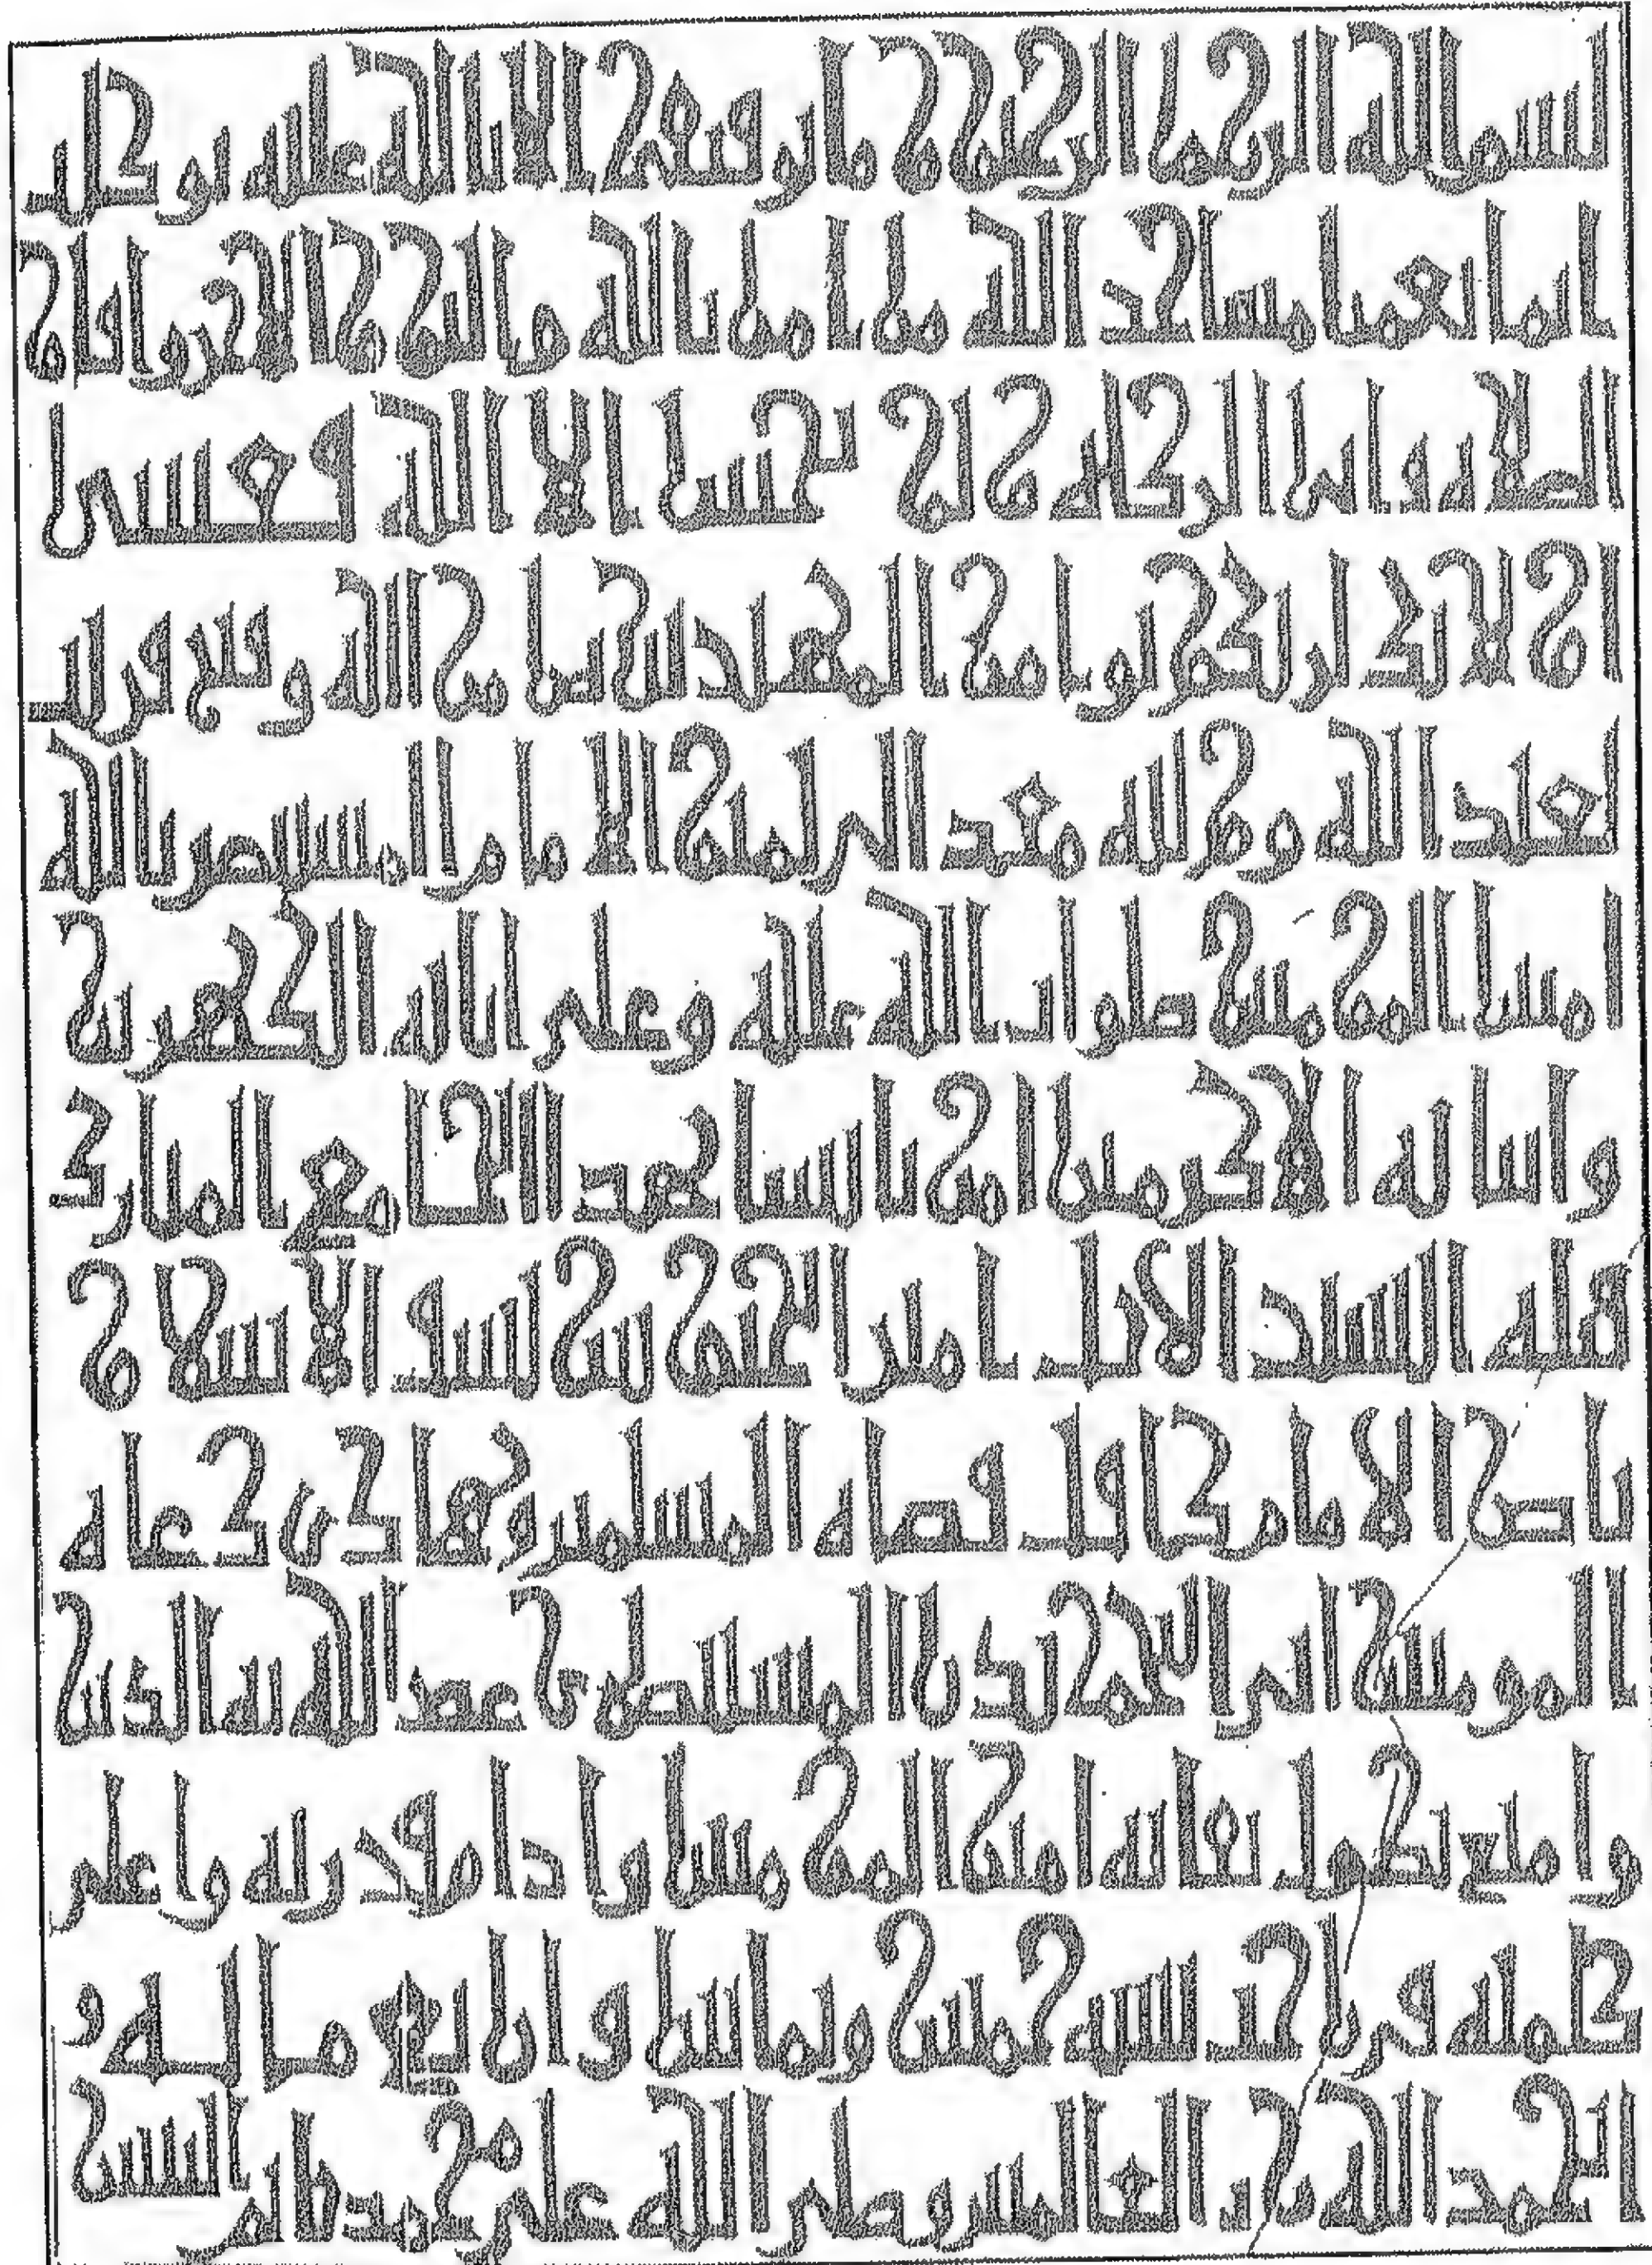 بسم الله الرحمن الرحيم وما توفيقي الا بالله عليه توكلت
انما يعمر مساجد الله من امن بالله واليوم الاخر واقام
الصلاة واتى الزكاة ولم يخش الا الله فعسى
اولئك ان يكونوا من المهتدين نصر من الله وفتح قريب
لعبد الله ووليه معد ابي تميم الامام المستنصر بالله
امير المؤمنين صلوات الله عليه وعلى ابائه الطاهرين
وابنائه الاكرمين امر بانشاء هذا الجامع المبارك
فتاه السيد الاجل امير الجيوش سيف الاسلام
ناصر الامام كافل قضاة المسلمين وهادي دعاة
المؤمنين ابو النجم بدر المستنصري عضد الله به الدين
وامتع بطول بقائه امير المؤمنين وادام قدرته واعلى
كلمته في رجب سنة خمس وثمانين واربع مائة و
الحمد لله رب العالمين وصلى الله على محمد خاتم النبيين